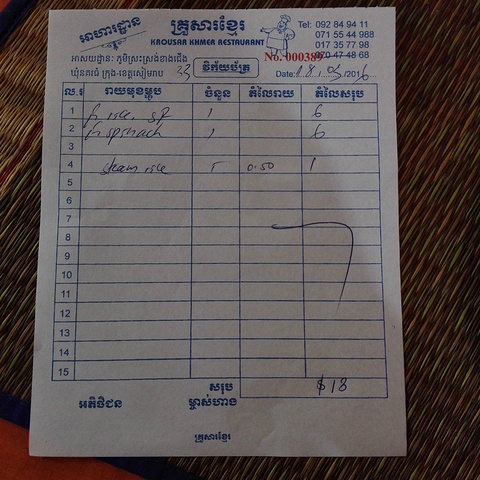 អាហារដ្ឋាន
គ្រួសារខ្មែរ
KROUSAR KHMER RESTAURANT
Tel: 092 84 94 11
071 55 44 988
017 35 77 98
070 47 48 68
អាសយដ្ឋាន: ភូមិស្រះស្រង់ខាងជើង
ឃុំនគរធំ ក្រុង-ខេត្តសៀមរាប
33
វិក័យប័ត្រ
No. 000389
Date: 18/05/2016
ល.រ រាយមុខម្ហូប ចំនួន តំលៃរាយ តំលៃសរុប
1 1 6
2 spinach 1 6
3
4 steam rice 0.50 1
5
6
7
8
9
10
11
12
13
14
15
សរុប $18
អតិថិជន ម្ចាស់ហាង
គ្រួសារខ្មែរ